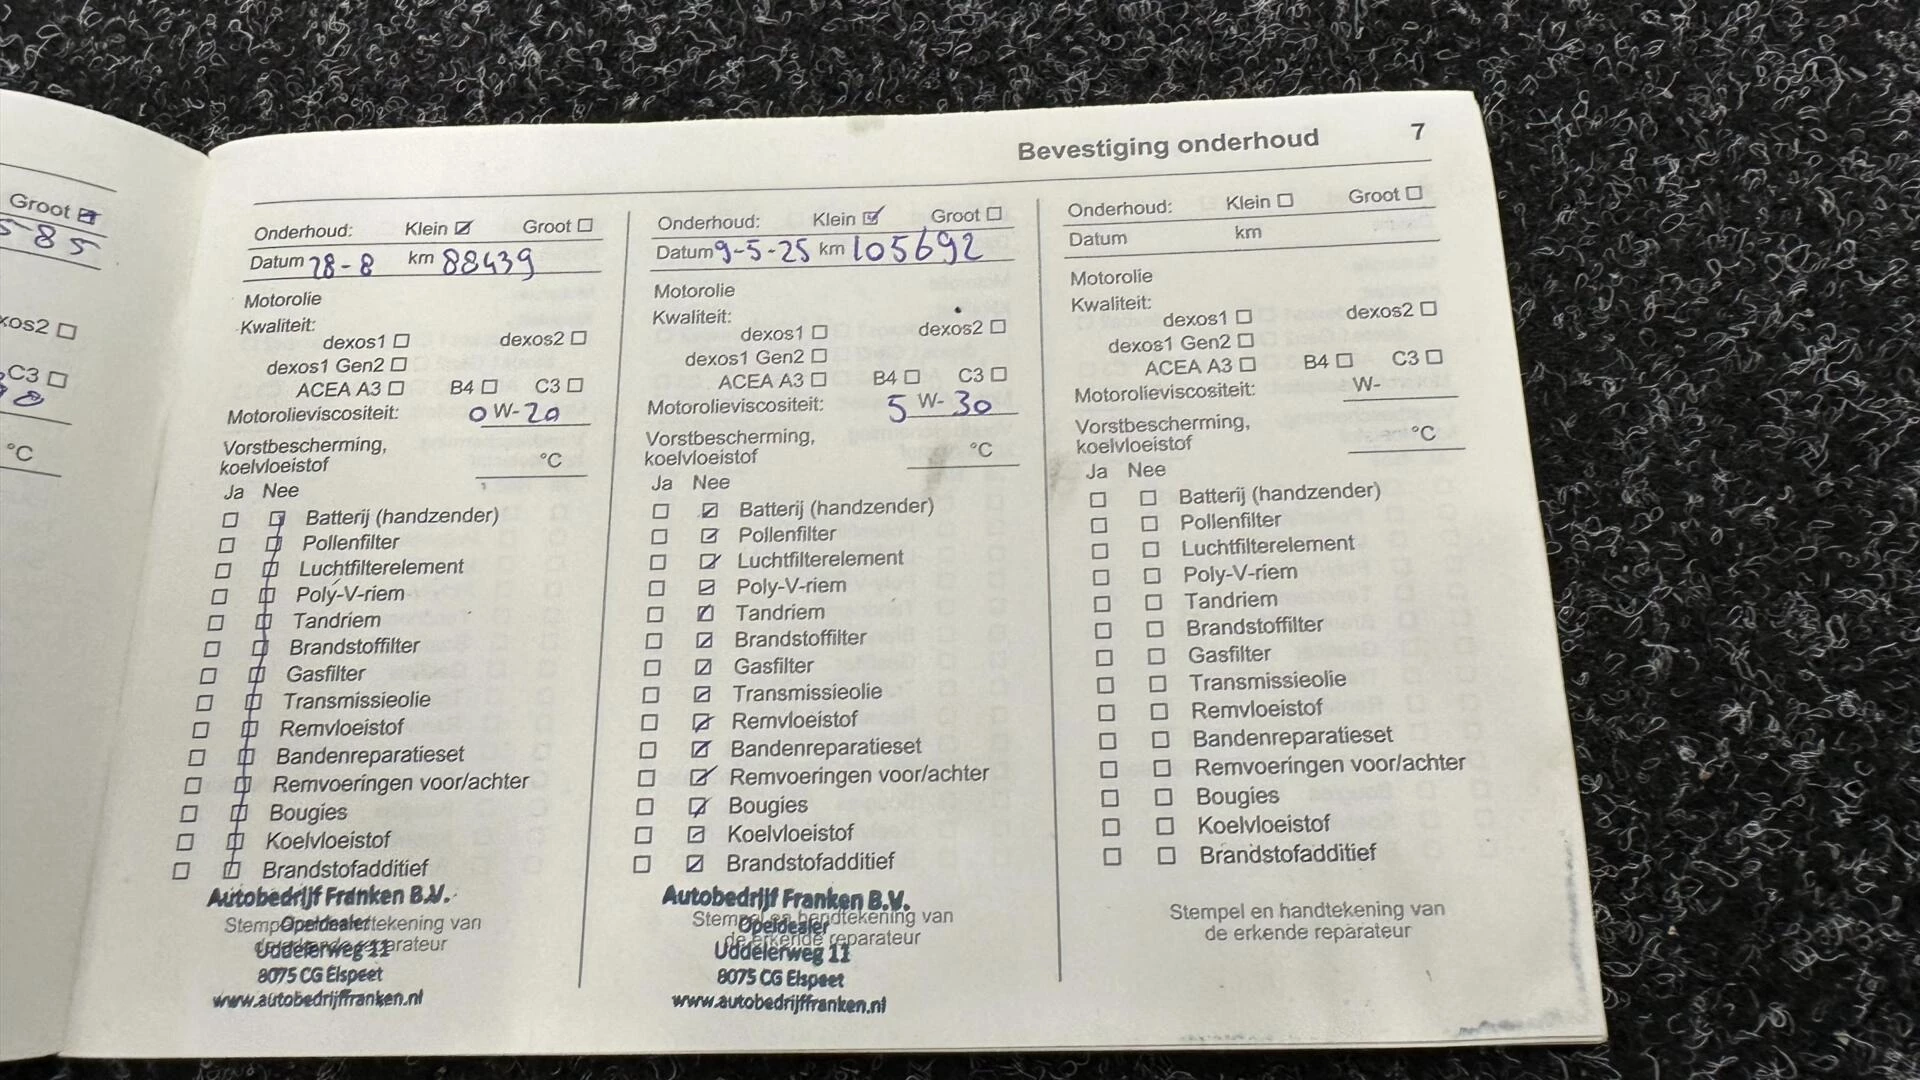 Groot
585
xos2
C3
°C
Bevestiging onderhoud 7
Onderhoud: Klein Groot
Datum 28-8 km 88439
Motorolie
Kwaliteit:
dexos1 dexos2
dexos1 Gen2
ACEA A3 B4 C3
Motorolieviscositeit: 0 W- 20
Vorstbescherming,
koelvloeistof °C
Ja Nee
Batterij (handzender)
Pollenfilter
Luchtfilterelement
Poly-V-riem
Tandriem
Brandstoffilter
Gasfilter
Transmissieolie
Remvloeistof
Bandenreparatieset
Remvoeringen voor/achter
Bougies
Koelvloeistof
Brandstofadditief
Autobedrijf Franken B.V.
Stempel en handtekening van
Opeldealer
de erkende reparateur
Uddelerweg 11
8075 CG Elspeet
www.autobedrijffranken.nl
Onderhoud: Klein Groot
Datum 9-5-25 km 105692
Motorolie
Kwaliteit:
dexos1 dexos2
dexos1 Gen2
ACEA A3 B4 C3
Motorolieviscositeit: 5 W- 30
Vorstbescherming,
koelvloeistof °C
Ja Nee
Batterij (handzender)
Pollenfilter
Luchtfilterelement
Poly-V-riem
Tandriem
Brandstoffilter
Gasfilter
Transmissieolie
Remvloeistof
Bandenreparatieset
Remvoeringen voor/achter
Bougies
Koelvloeistof
Brandstofadditief
Autobedrijf Franken B.V.
Stempel en handtekening van
Opeldealer
de erkende reparateur
Uddelerweg 11
8075 CG Elspeet
www.autobedrijffranken.nl
Onderhoud: Klein Groot
Datum km
Motorolie
Kwaliteit:
dexos1 dexos2
dexos1 Gen2
ACEA A3 B4 C3
Motorolieviscositeit: W-
Vorstbescherming,
koelvloeistof °C
Ja Nee
Batterij (handzender)
Pollenfilter
Luchtfilterelement
Poly-V-riem
Tandriem
Brandstoffilter
Gasfilter
Transmissieolie
Remvloeistof
Bandenreparatieset
Remvoeringen voor/achter
Bougies
Koelvloeistof
Brandstofadditief
Stempel en handtekening van
de erkende reparateur